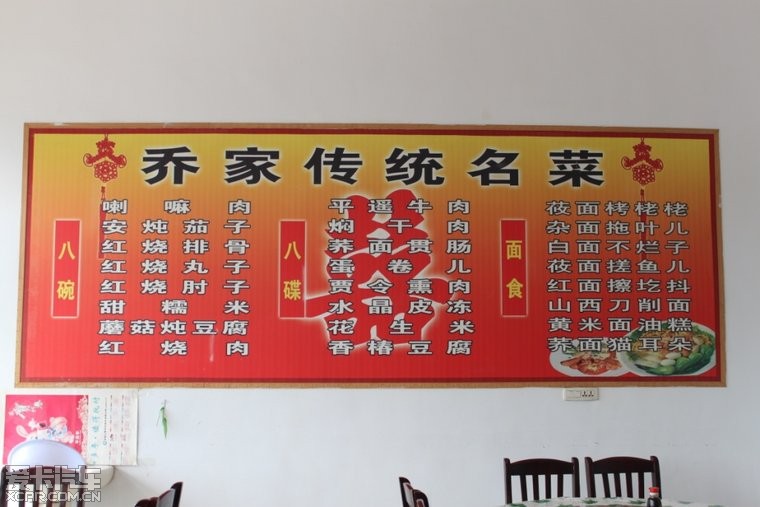 乔家传统名菜
八碗
喇嘛肉
安炖茄子
红烧排骨
红烧丸子
红烧肘子
甜糯米
蘑菇炖豆腐
红烧肉
八碟
平遥牛肉
焖干肉
荞面贯肠
蛋卷儿
贾令熏肉
水晶皮冻
花生米
香椿豆腐
面食
莜面栲栳栳
杂面拖叶儿
白面不烂子
莜面搓鱼儿
红面擦圪抖
山西刀削面
黄米面油糕
荞面猫耳朵
爱卡汽车
XCAR.COM.CN